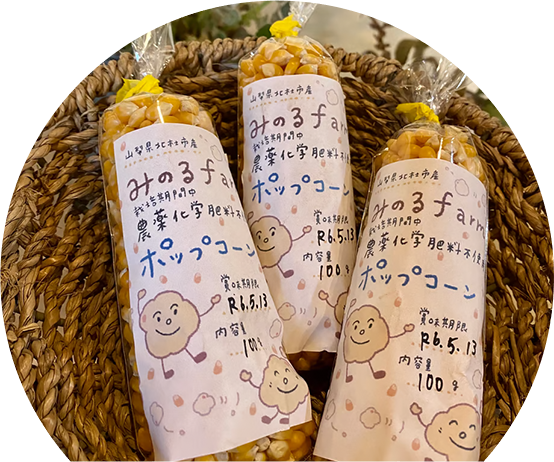 山梨県北杜市産
みのるfarm
栽培期間中
農薬化学肥料不使
ポップコーン
賞味期限
R6.5.13
内容量
100g
山梨県北杜市産
みのるfar
栽培期間中
農薬化学肥料
ポップコーン
賞味期限
R6.5.13
内容量
100
山梨県北杜市産
みのるfarm
栽培期間中
農薬化学肥料不使
ポップコーン
賞味期限
R6.5.13
内容量
100g